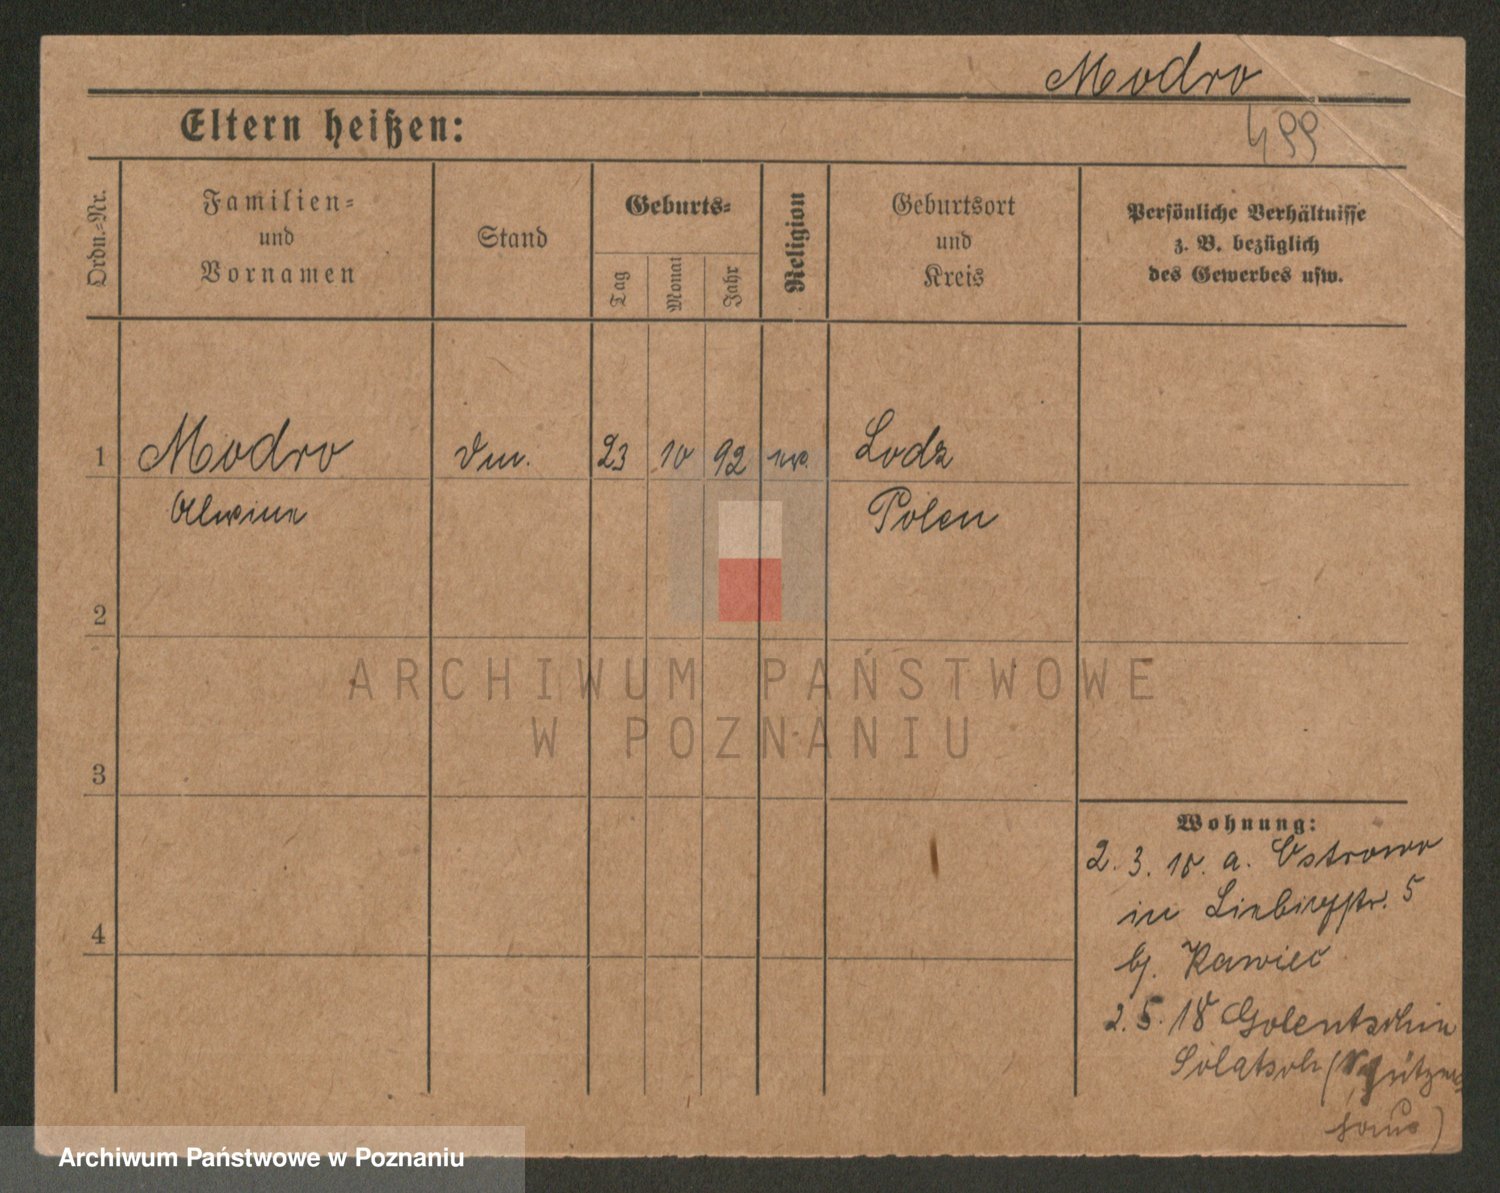 Modro
499
Eltern heißen:
Ordn.-Nr.
Familien-
und
Vornamen
Stand
Geburts-
Tag
Monat
Jahr
Religion
Geburtsort
und
Kreis
Persönliche Verhältnisse
z. B. bezüglich
des Gewerbes usw.
1 Modro 23 10 92 Lodz
Alwine Polen
2
3
4
Wohnung:
2. 3. 18. a. Ostrowo
in Liebigstr. 5
b. Kawiec
2. 5. 18 Golentschin
Solatsch (Schützen
haus)
ARCHIWUM PAŃSTWOWE
W POZNANIU
Archiwum Państwowe w Poznaniu